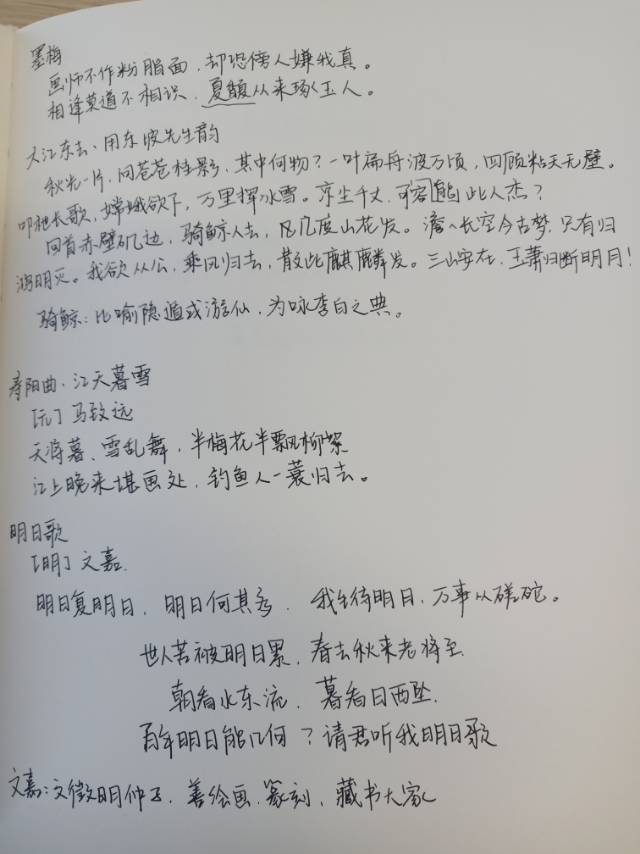 墨梅
画师不作粉脂面，却恐傍人嫌我真。
相逢莫道不相识，夏馥从来琢玉人。
大江东去·用东坡先生韵
秋光一片，问苍苍桂影，其中何物？一叶扁舟波万顷，四顾粘天无壁。
叩枻长歌，嫦娥欲下，万里挥冰雪。京尘千丈，可容能此人杰？
回首赤壁矶边，骑鲸人去，几度山花发。澹澹长空今古梦，只有归
鸿明灭。我欲从公，乘风归去，散此麒麟发。三山安在，玉萧归断明月！
骑鲸：比喻隐遁或游仙，为咏李白之典。
寿阳曲·江天暮雪
[元] 马致远
天将暮、雪乱舞，半梅花半飘柳絮
江上晚来堪画处，钓鱼人一蓑归去。
明日歌
[明] 文嘉
明日复明日，明日何其多，我生待明日，万事以磋砣。
世人苦被明日累，春去秋来老将至
朝看水东流，暮看日西坠
百年明日能几何？请君听我明日歌
文嘉：文徵明仲子，善绘画、篆刻，藏书大家